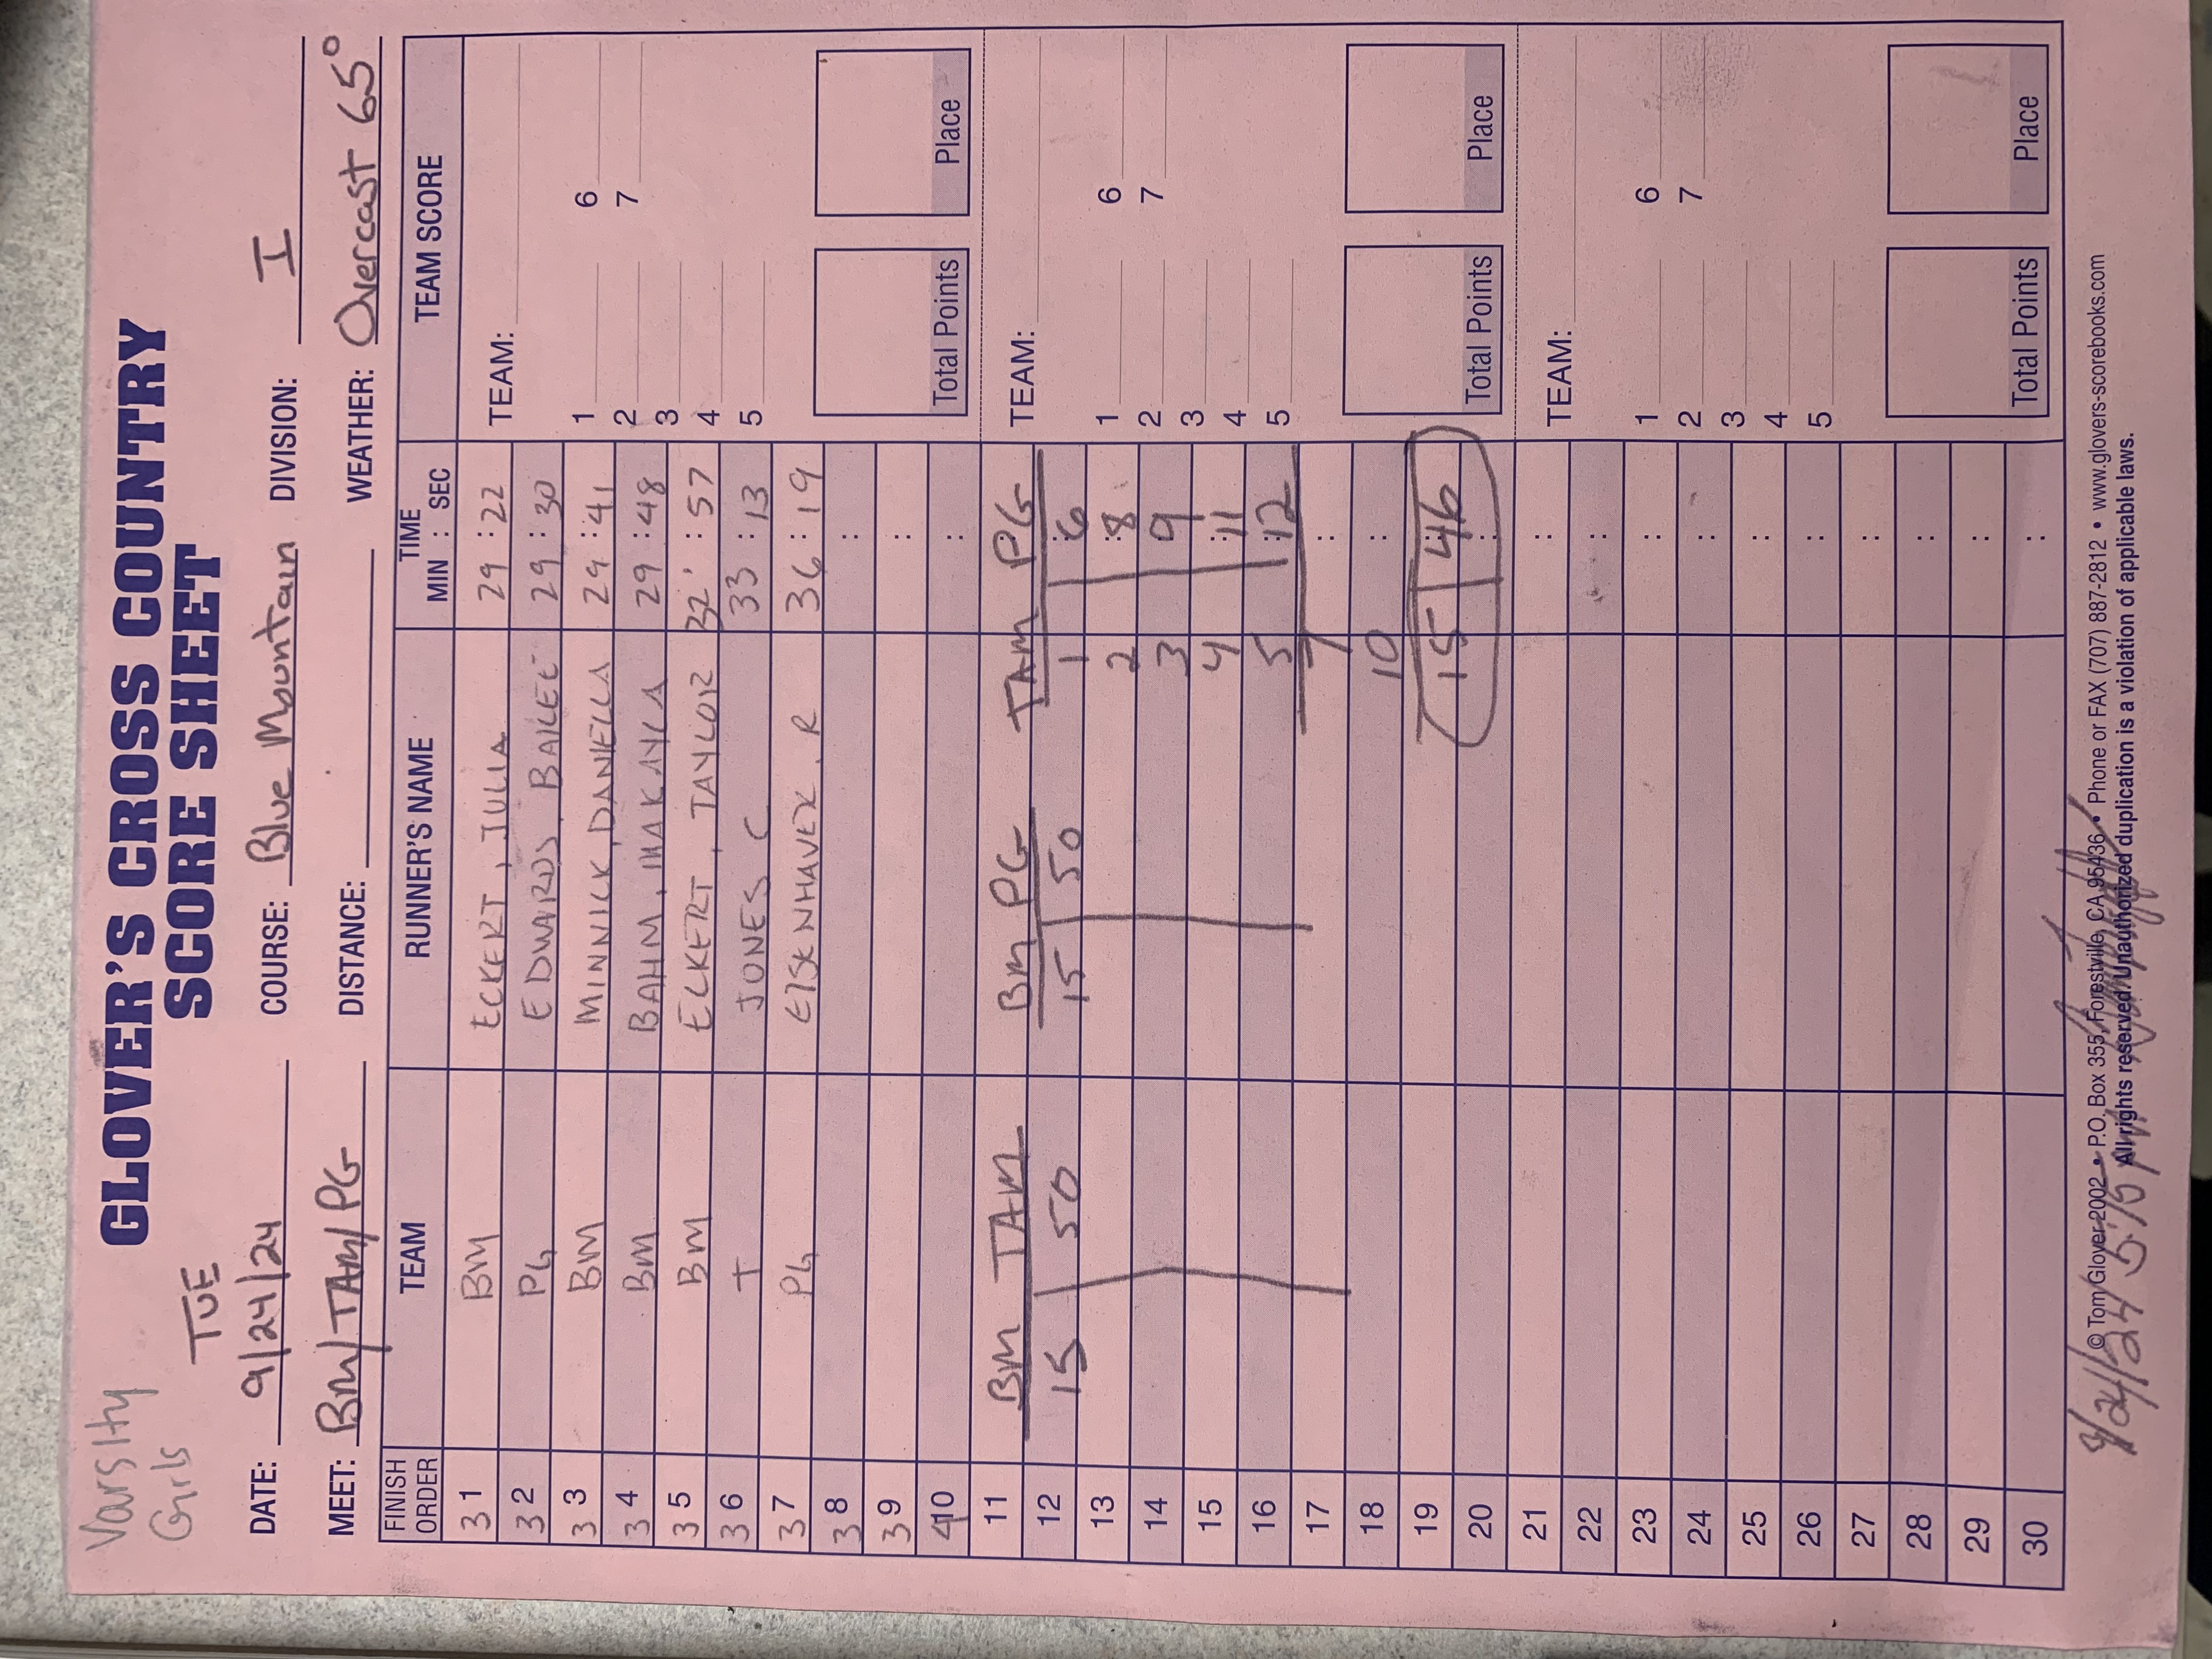 Varsity
Girls
TUE
GLOVER'S CROSS COUNTRY
SCORE SHEET
DATE: 9/24/24 COURSE: Blue Mountain DIVISION: I
MEET: BM/TAM/PG DISTANCE: WEATHER: Overcast 65°
FINISH ORDER TEAM RUNNER'S NAME TIME MIN : SEC TEAM SCORE
31 BM ECKERT, JULIA 29:22
32 PG EDWARDS, BAILEE 29:30
33 BM MINNICK, DANIELLA 29:41
34 BM BAHM, MAKAYLA 29:48
35 BM ECKERT, TAYLOR 32:57
36 T JONES C 33:13
37 PG EISENHAVER, R 36:19
38 :
39 :
40 10 :
TEAM:
1 6
2 7
3
4
5
Total Points Place
11 BM TAM BM PG TAM PG
12 15 50 15 50 1 6
13 2 8
14 3 9
15 4 11
16 5 12
17 7 :
18 10 :
19 15 46
20 :
TEAM:
1 6
2 7
3
4
5
Total Points Place
21 :
22 :
23 :
24 :
25 :
26 :
27 :
28 :
29 :
30 :
TEAM:
1 6
2 7
3
4
5
Total Points Place
© Tom Glover 2002 • P.O. Box 355, Forestville, CA 95436 • Phone or FAX (707) 887-2812 • www.glovers-scorebooks.com
All rights reserved. Unauthorized duplication is a violation of applicable laws.
9/24/24 5:15 PM